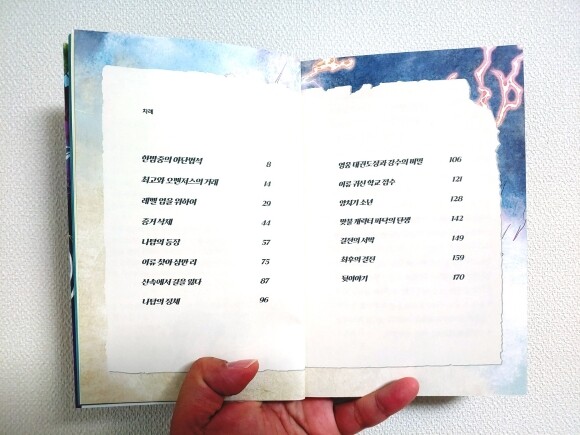 차례
한밤중의 야단법석 8
최고와 오벤저스의 거래 14
레벨 업을 위하여 29
증거 삭제 44
나탑의 등장 57
이류 찾아 삼만 리 75
산속에서 길을 잃다 87
나탑의 정체 96
영웅 태권도장과 검수의 비밀 106
이류 귀신 학교 접수 121
양치기 소년 128
맞불 캐릭터 파닥의 탄생 142
결전의 서막 149
최후의 결전 159
뒷이야기 170